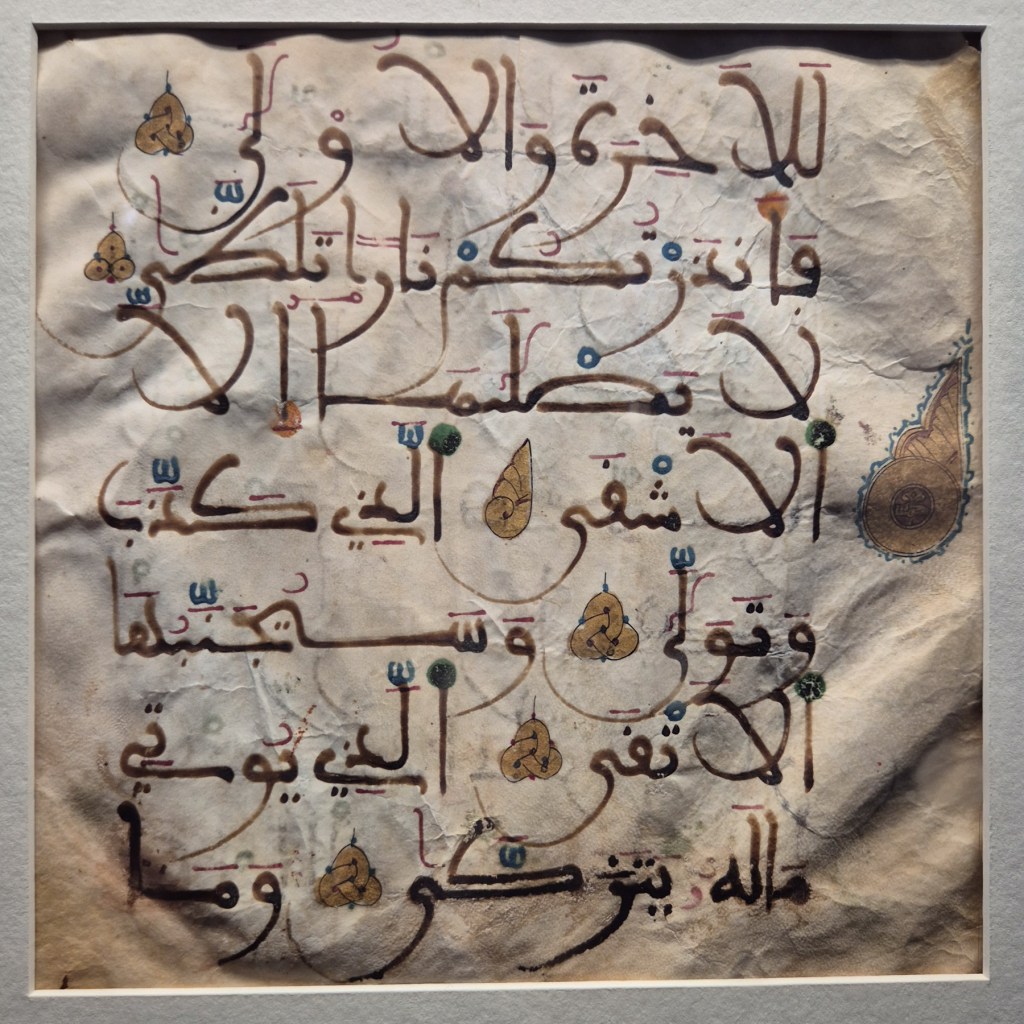 لَلَاخِرَةَ وَالُاولَىٰ
فَأَنذَرْتُكُمْ نَارًا تَلَظَّىٰ
لَا يَصْلَىٰهَا إِلَّا
اَلَاشْقَى اَلَّذِي كَذَّبَ
وَتَوَلَّىٰ وَسَيُجَنَّبُهَا
اَلَاتْقَى اَلَّذِي يُوتِي
مَالَهُ يَتَزَكَّىٰ وَمَا